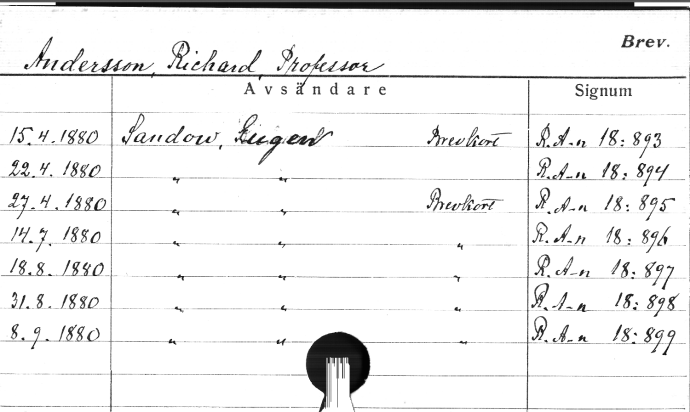 Brev.
Andersson, Richard, Professor
Avsändare Signum
15.4.1880 Sandow, Eugen Brevkort R.A-n 18:893
22.4.1880 " " R.A-n 18:894
27.4.1880 " " Brevkort R.A-n 18:895
14.7.1880 " " " R.A-n 18:896
18.8.1880 " " " R.A-n 18:897
31.8.1880 " " " R.A-n 18:898
8.9.1880 " " " R.A-n 18:899